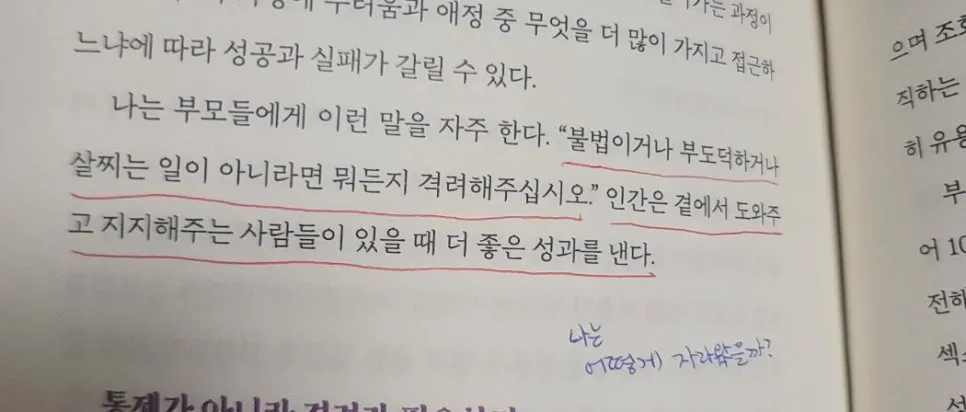 과 애정 중 무엇을 더 많이 가지고 접근하
느냐에 따라 성공과 실패가 갈릴 수 있다.
나는 부모들에게 이런 말을 자주 한다. “불법이거나 부도덕하거나
살찌는 일이 아니라면 뭐든지 격려해주십시오.” 인간은 곁에서 도와주
고 지지해주는 사람들이 있을 때 더 좋은 성과를 낸다.
나는
어떻게 자라왔을까?
으며
직하는
히
부
어 10
전해